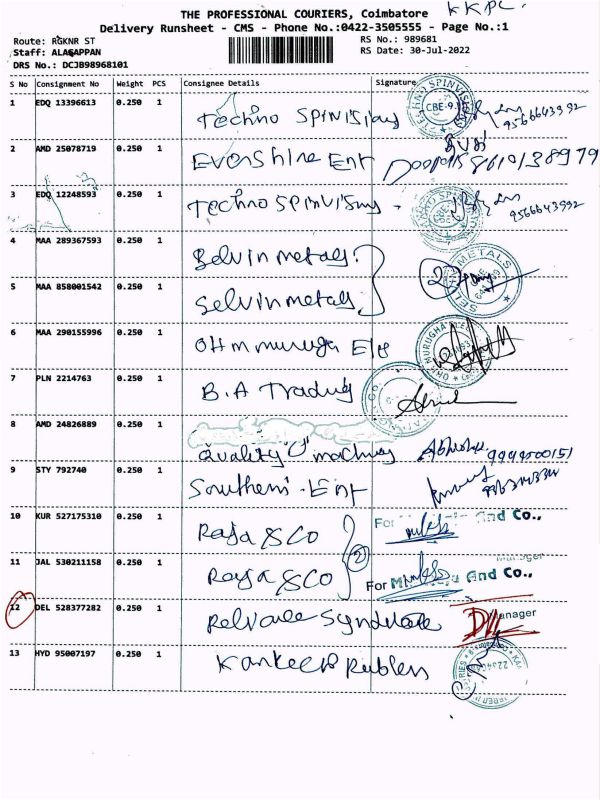 KKPC
THE PROFESSIONAL COURIERS, Coimbatore
Delivery Runsheet - CMS - Phone No.:0422-3505555 - Page No.:1
Route: RGKNR ST RS No.: 989681
Staff: ALAGAPPAN RS Date: 30-Jul-2022
DRS No.: DCJB98968101
S No Consignment No Weight PCS Consignee Details Signature
1 EDQ 13396613 0.250 1 Techno Spinvisions CBE-9. 9566643992
2 AMD 25078719 0.250 1 Evershine Ent 8610138979
3 EDQ 12248593 0.250 1 Techno Spinvisions 9566643992
4 MAA 289367593 0.250 1 Selvin metals. 2
5 MAA 858001542 0.250 1 Selvin metals
6 MAA 290155996 0.250 1 Ohm muruga
7 PLN 2214763 0.250 1 B.A Trading
8 AMD 24826889 0.250 1 Quality
9 STY 792740 0.250 1 Southern. Ent
10 KUR 527175310 0.250 1 Raja & Co 2 For And Co.,
11 JAL 530211158 0.250 1 Raja & Co Manager For And Co.,
12 DEL 528377282 0.250 1 Reliance Syndicate Manager
13 HYD 95007197 0.250 1